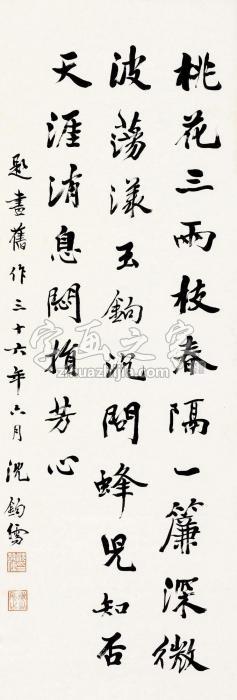 桃花三兩枝春隔一簾深微
波蕩漾玉鉤沉問蜂兒知否
天涯消息悶損芳心
題畫舊作三十六年六月沈鈞儒
字画之家
zihuazhijia.com